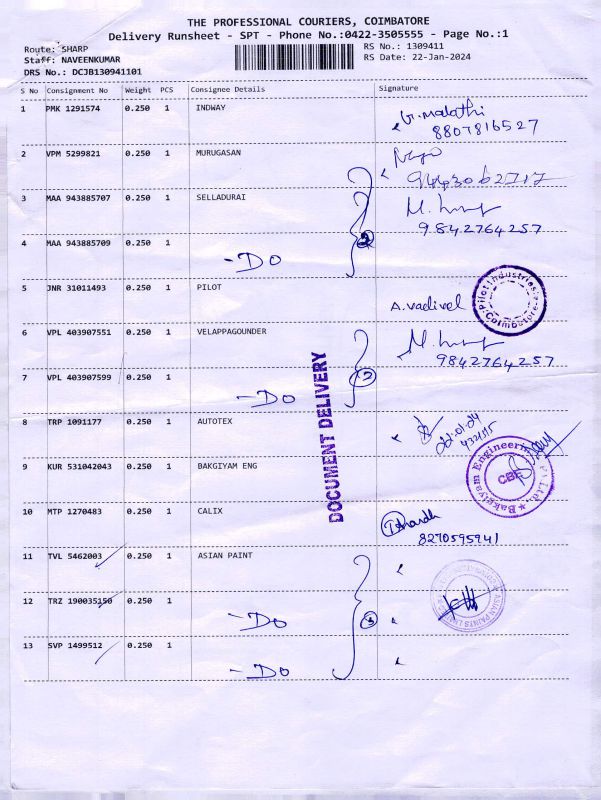 THE PROFESSIONAL COURIERS, COIMBATORE
Delivery Runsheet - SPT - Phone No.:0422-3505555 - Page No.:1
Route: SHARP
RS No.: 1309411
Staff: NAVEENKUMAR
RS Date: 22-Jan-2024
DRS No.: DCJB130941101
S No Consignment No Weight PCS Consignee Details Signature
1 PMK 1291574 0.250 1 INDWAY
G. Malathi
8807816527
2 VPM 5299821 0.250 1 MURUGASAN
9443062717
3 MAA 943885707 0.250 1 SELLADURAI
9842764257
4 MAA 943885709 0.250 1
- DO
5 JNR 31011493 0.250 1 PILOT
A. Vadivel
Pilot Industries
Coimbatore
6 VPL 403907551 0.250 1 VELAPPAGOUNDER
9842764257
7 VPL 403907599 0.250 1
- DO
DOCUMENT DELIVERY
8 TRP 1091177 0.250 1 AUTOTEX
22.01.24
9 KUR 531042043 0.250 1 BAKGIYAM ENG
Bakgiyam Engineering
CBE
10 MTP 1270483 0.250 1 CALIX
8270595941
11 TVL 5462003 0.250 1 ASIAN PAINT
ASIAN PAINTS LIMITED
12 TRZ 190035150 0.250 1
- DO
3
13 SVP 1499512 0.250 1
- DO